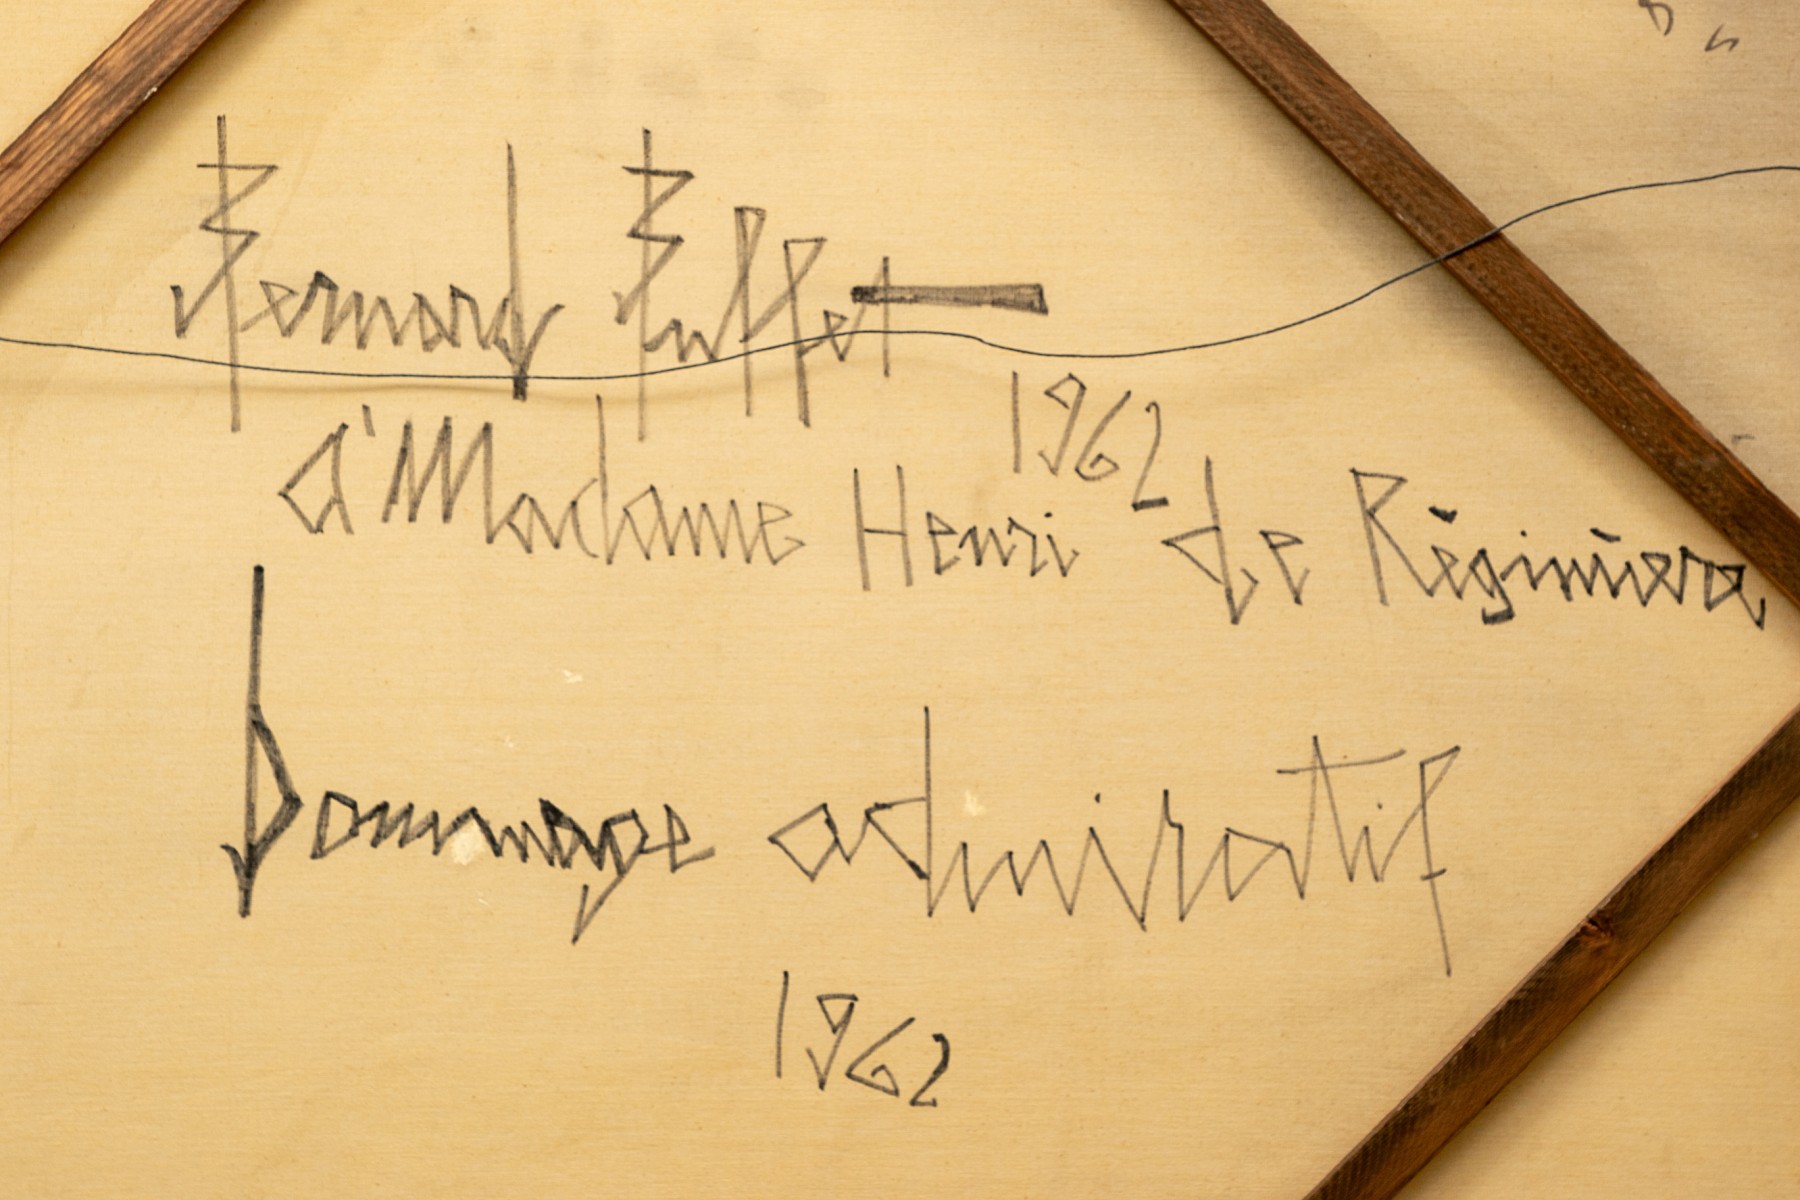 Bernard Buffet
1962
à Madame Henri de
Hommage admiratif
1962